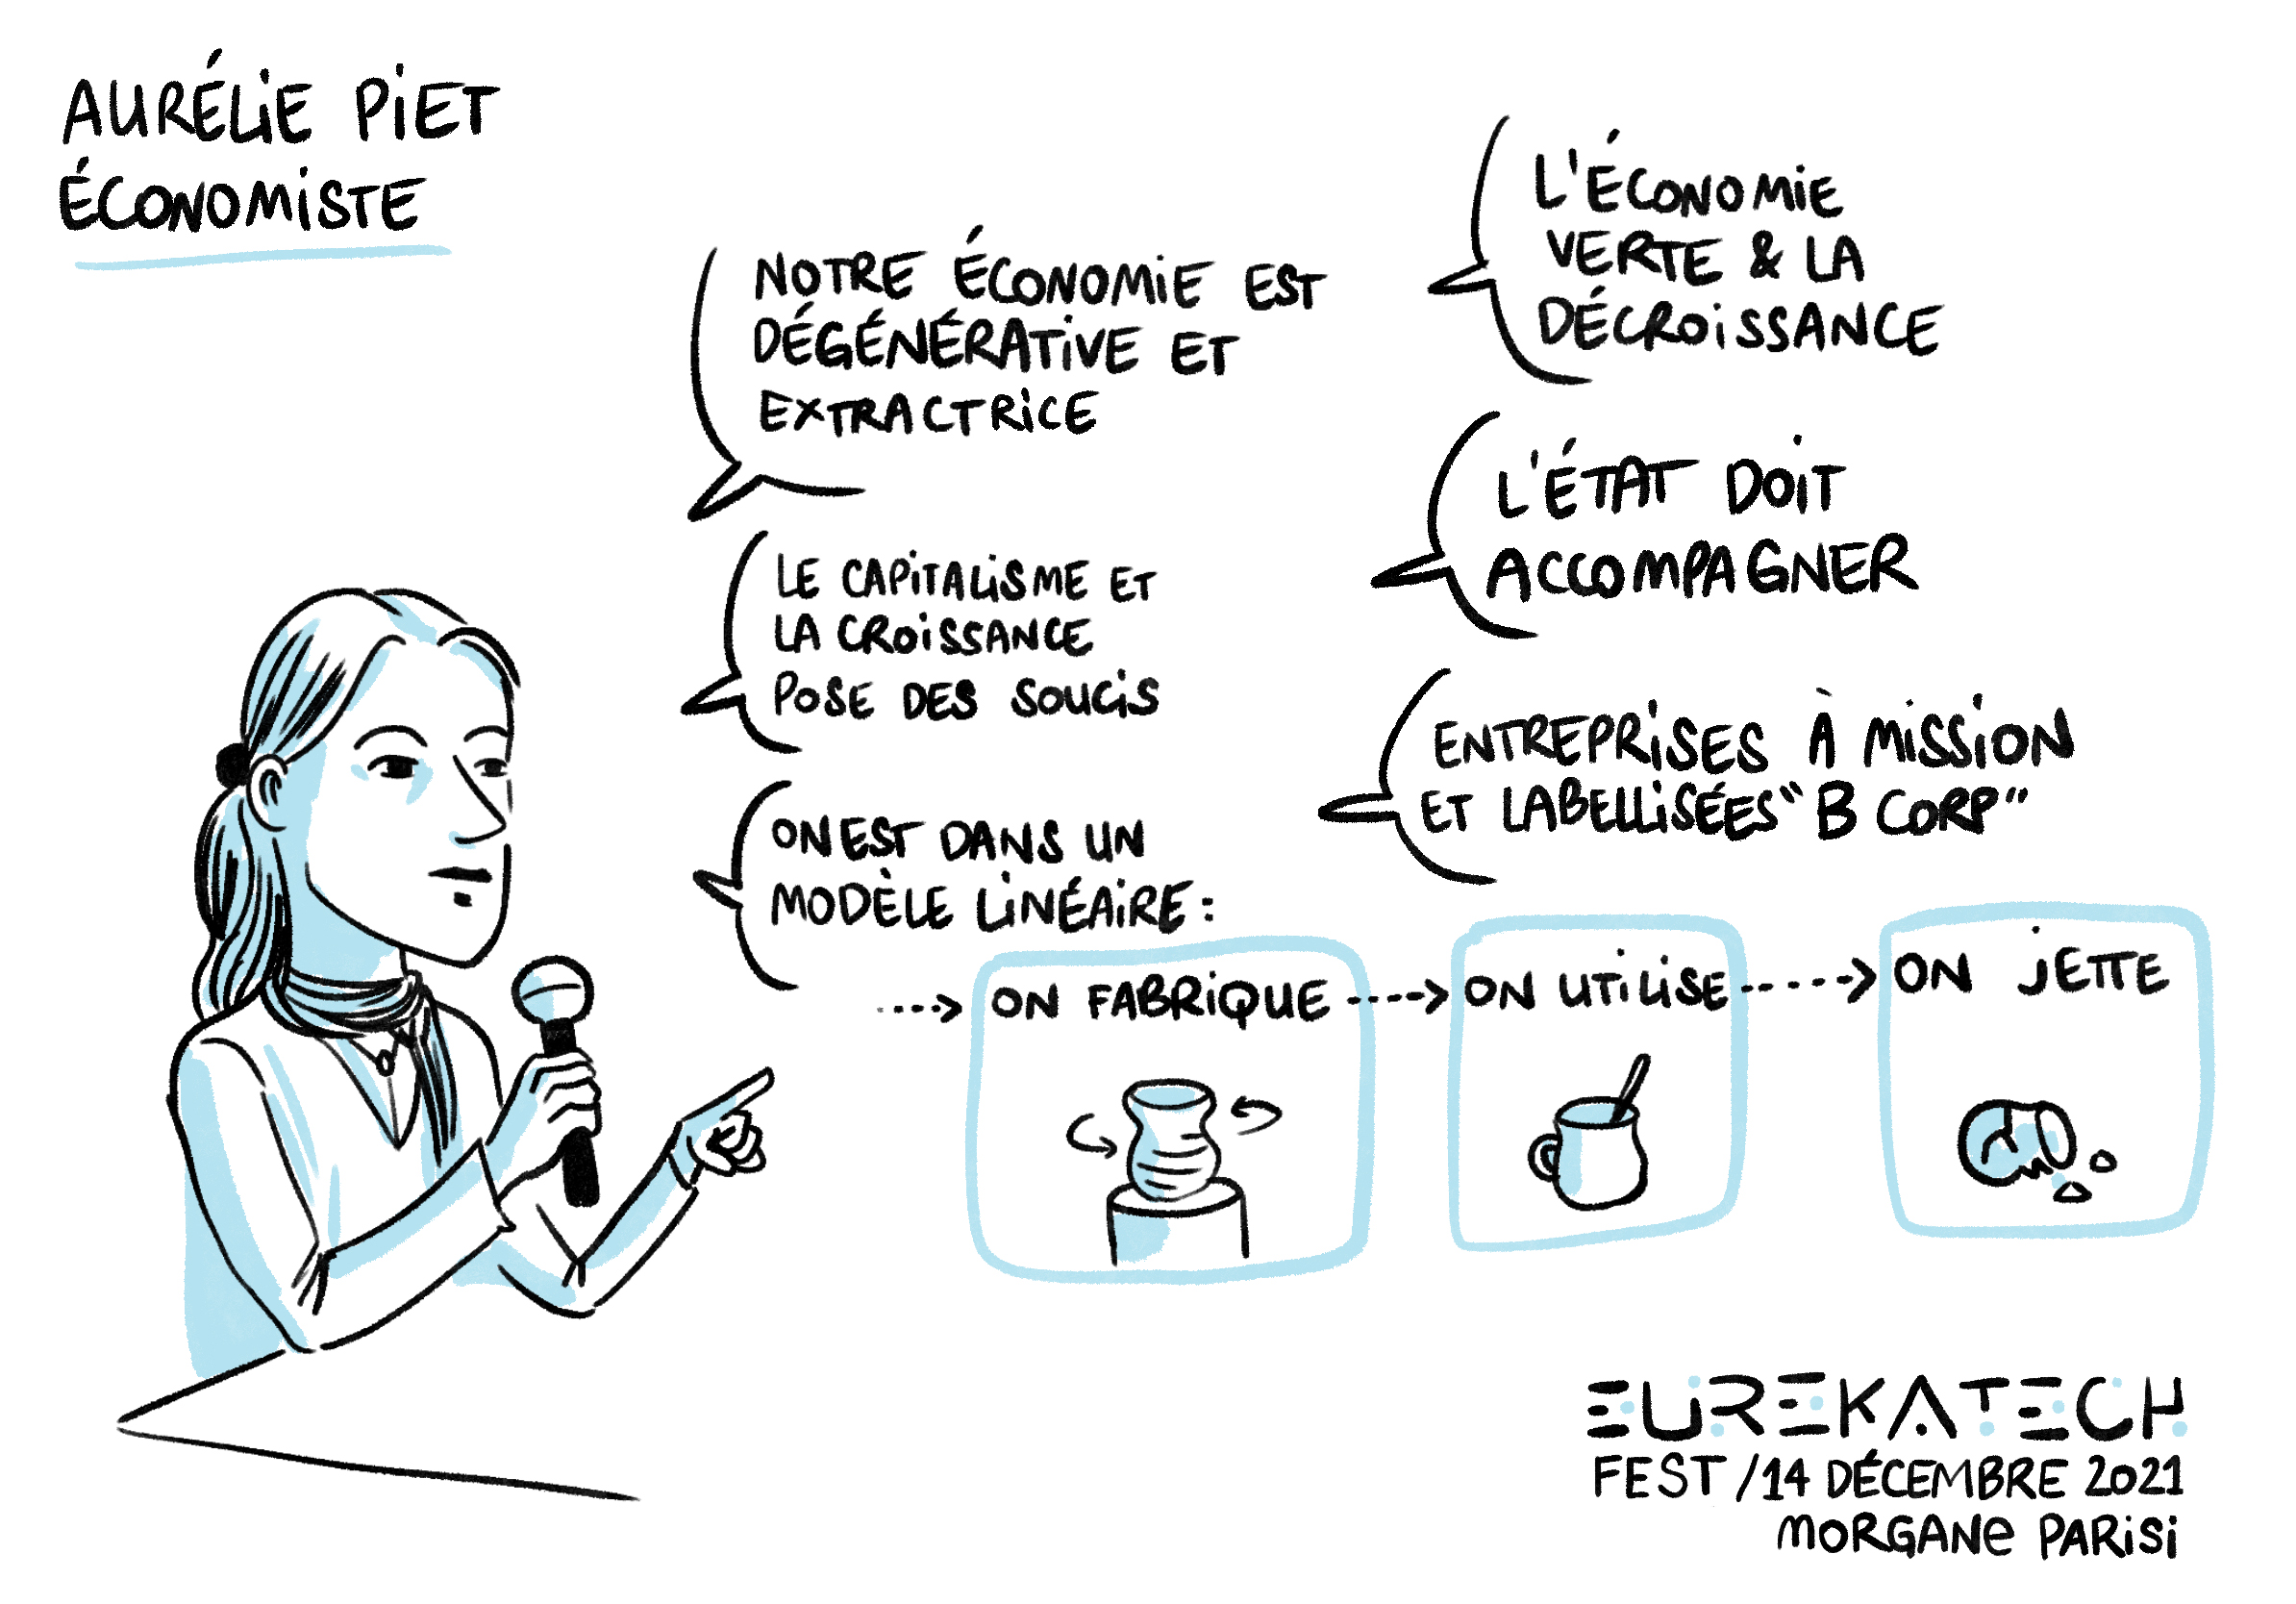 AURÉLIE PIET
ÉCONOMISTE
NOTRE ÉCONOMIE EST
DÉGÉNÉRATIVE ET
EXTRACTRICE
LE CAPITALISME ET
LA CROISSANCE
POSE DES SOUCIS
ON EST DANS UN
MODÈLE LINÉAIRE :
ON FABRIQUE
ON UTILISE
ON JETTE
L'ÉCONOMIE
VERTE & LA
DÉCROISSANCE
L'ÉTAT DOIT
ACCOMPAGNER
ENTREPRISES À MISSION
ET LABELLISÉES "B CORP"
EUREKATECH
FEST / 14 DÉCEMBRE 2021
MORGANE PARISI